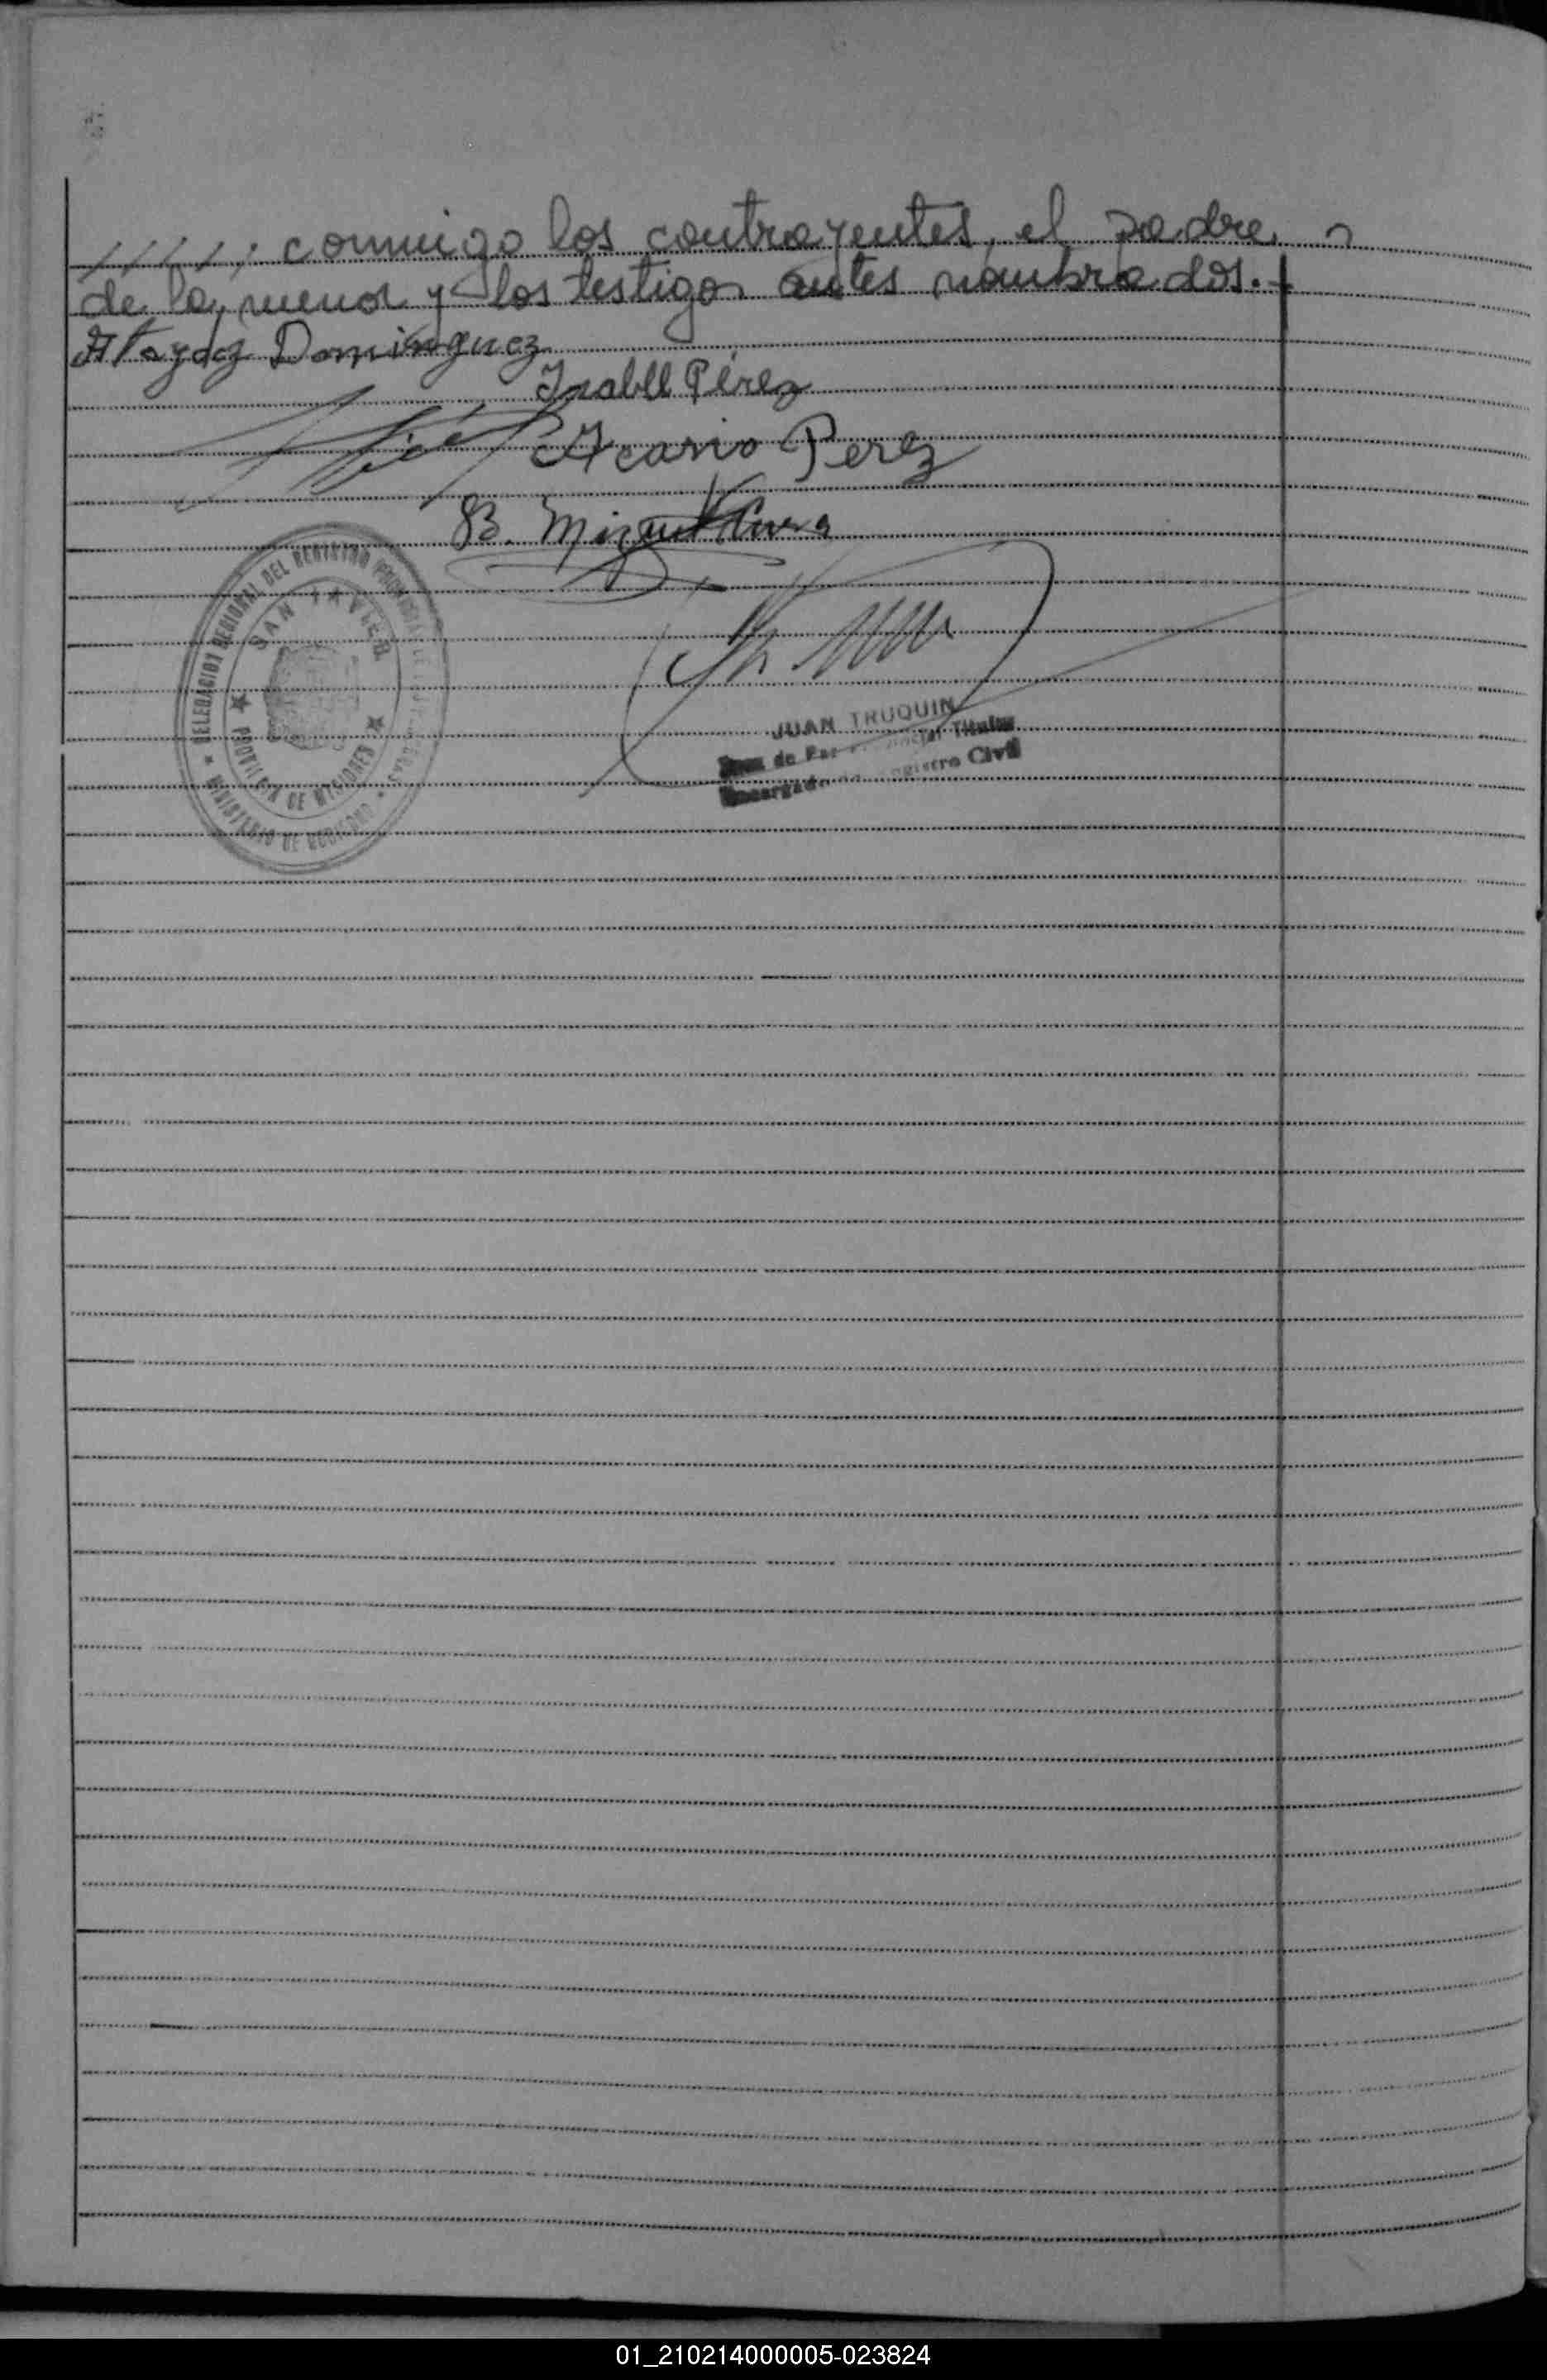 ///// conmigo los contrayentes, el padre
de la menor y los testigos antes nombrados.-
Ataydez Dominguez
Isabel Pérez
Acario Perez
B.
DELEGACION REGIONAL DEL REGISTRO PROVINCIAL DE LAS PERSONAS
SAN JAVIER
PROVINCIA DE MISIONES
MINISTERIO DE GOBIERNO
JUAN TRUQUIN
Juez de Paz Titular
Encargado del Registro Civil
01_210214000005-023824